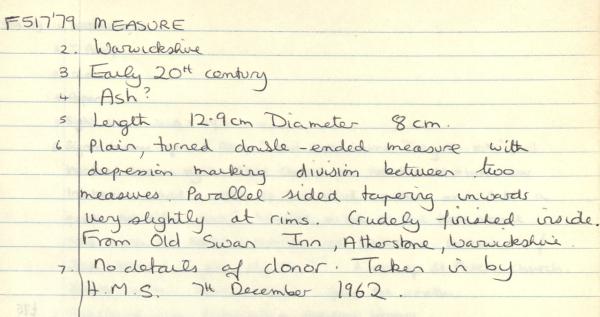 F517'79 MEASURE
2. Warwickshire
3 Early 20th century
4 Ash?
5 Length 12.9cm Diameter 8cm.
6 Plain, turned double-ended measure with
depression marking division between two
measures. Parallel sided tapering inwards
very slightly at rims. Crudely finished inside.
From Old Swan Inn, Atherstone, Warwickshire.
7. No details of donor. Taken in by
H.M.S. 7th December 1962.